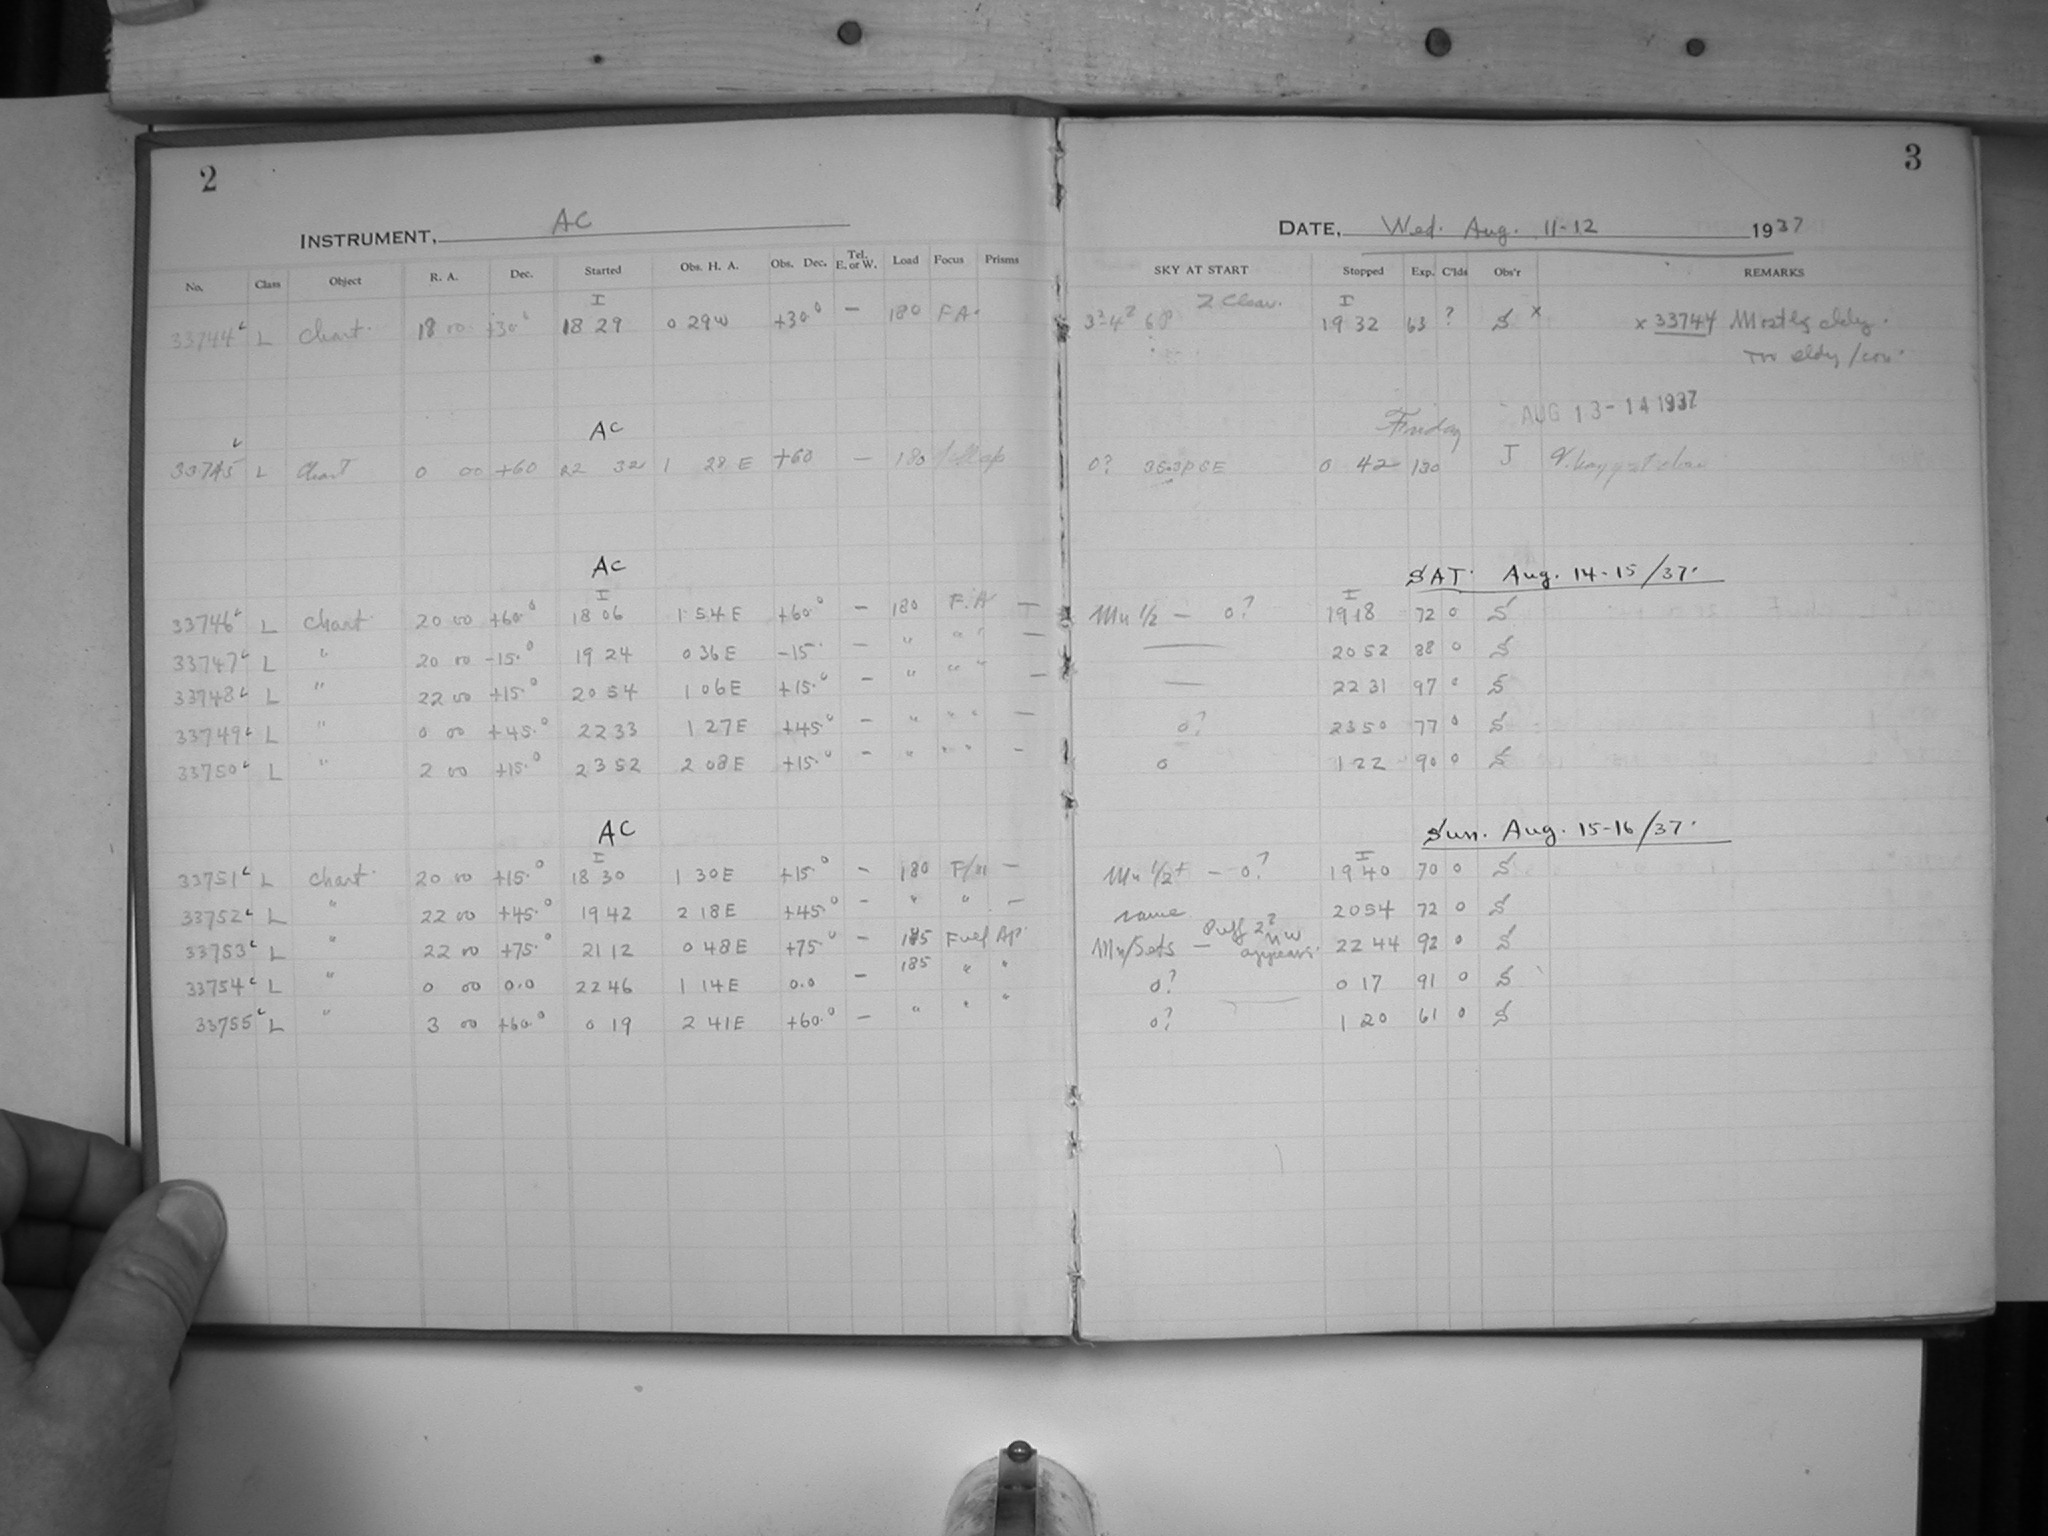 2
INSTRUMENT, AC
No. Class Object R. A. Dec. Started Obs. H. A. Obs. Dec. Tel. E. or W. Load Focus Prisms
I
33744 L Chart 18 00 +30.° 18 29 0 29W +30.° — 180 F A.
AC
33745 L Chart 0 00 +60 22 32 1 28 E +60 — 180
AC
I
33746 L Chart 20 00 +60.° 18 06 1 54 E +60.° — 180 F.A —
33747 L " 20 00 -15.° 19 24 0 36 E -15. — " " " —
33748 L " 22 00 +15.° 20 54 1 06 E +15.° — " " " —
33749 L " 0 00 +45.° 22 33 1 27 E +45° — " " " —
33750 L " 2 00 +15.° 23 52 2 08 E +15.° — " " " —
AC
I
33751 L Chart 20 00 +15.° 18 30 1 30 E +15.° — 180 —
33752 L " 22 00 +45.° 19 42 2 18 E +45.° — " " —
33753 L " 22 00 +75.° 21 12 0 48 E +75.° — 185 Ap.
33754 L " 0 00 0.0 22 46 1 14 E 0.0 — 185 " "
33755 L " 3 00 +60.° 0 19 2 41 E +60.° — " " "
3
DATE, Wed. Aug. 11-12 1937
SKY AT START Stopped Exp. C'lds Obs'r REMARKS
2 Clear. I
19 32 63 ? S x x 33744 Mostly cldy.
AUG 13-14 1937
Friday
0? 0 42 130 J
SAT. Aug. 14-15/37.
I
Mn 1/2 — 0? 19 18 72 0 S
— 20 52 88 0 S
— 22 31 97 0 S
0? 23 50 77 0 S
0 1 22 90 0 S
Sun. Aug. 15-16/37.
I
Mn 1/2+ — 0? 19 40 70 0 S
same 20 54 72 0 S
Mn/Sets — Puff 2? NW appears. 22 44 92 0 S
0? 0 17 91 0 S
0? 1 20 61 0 S